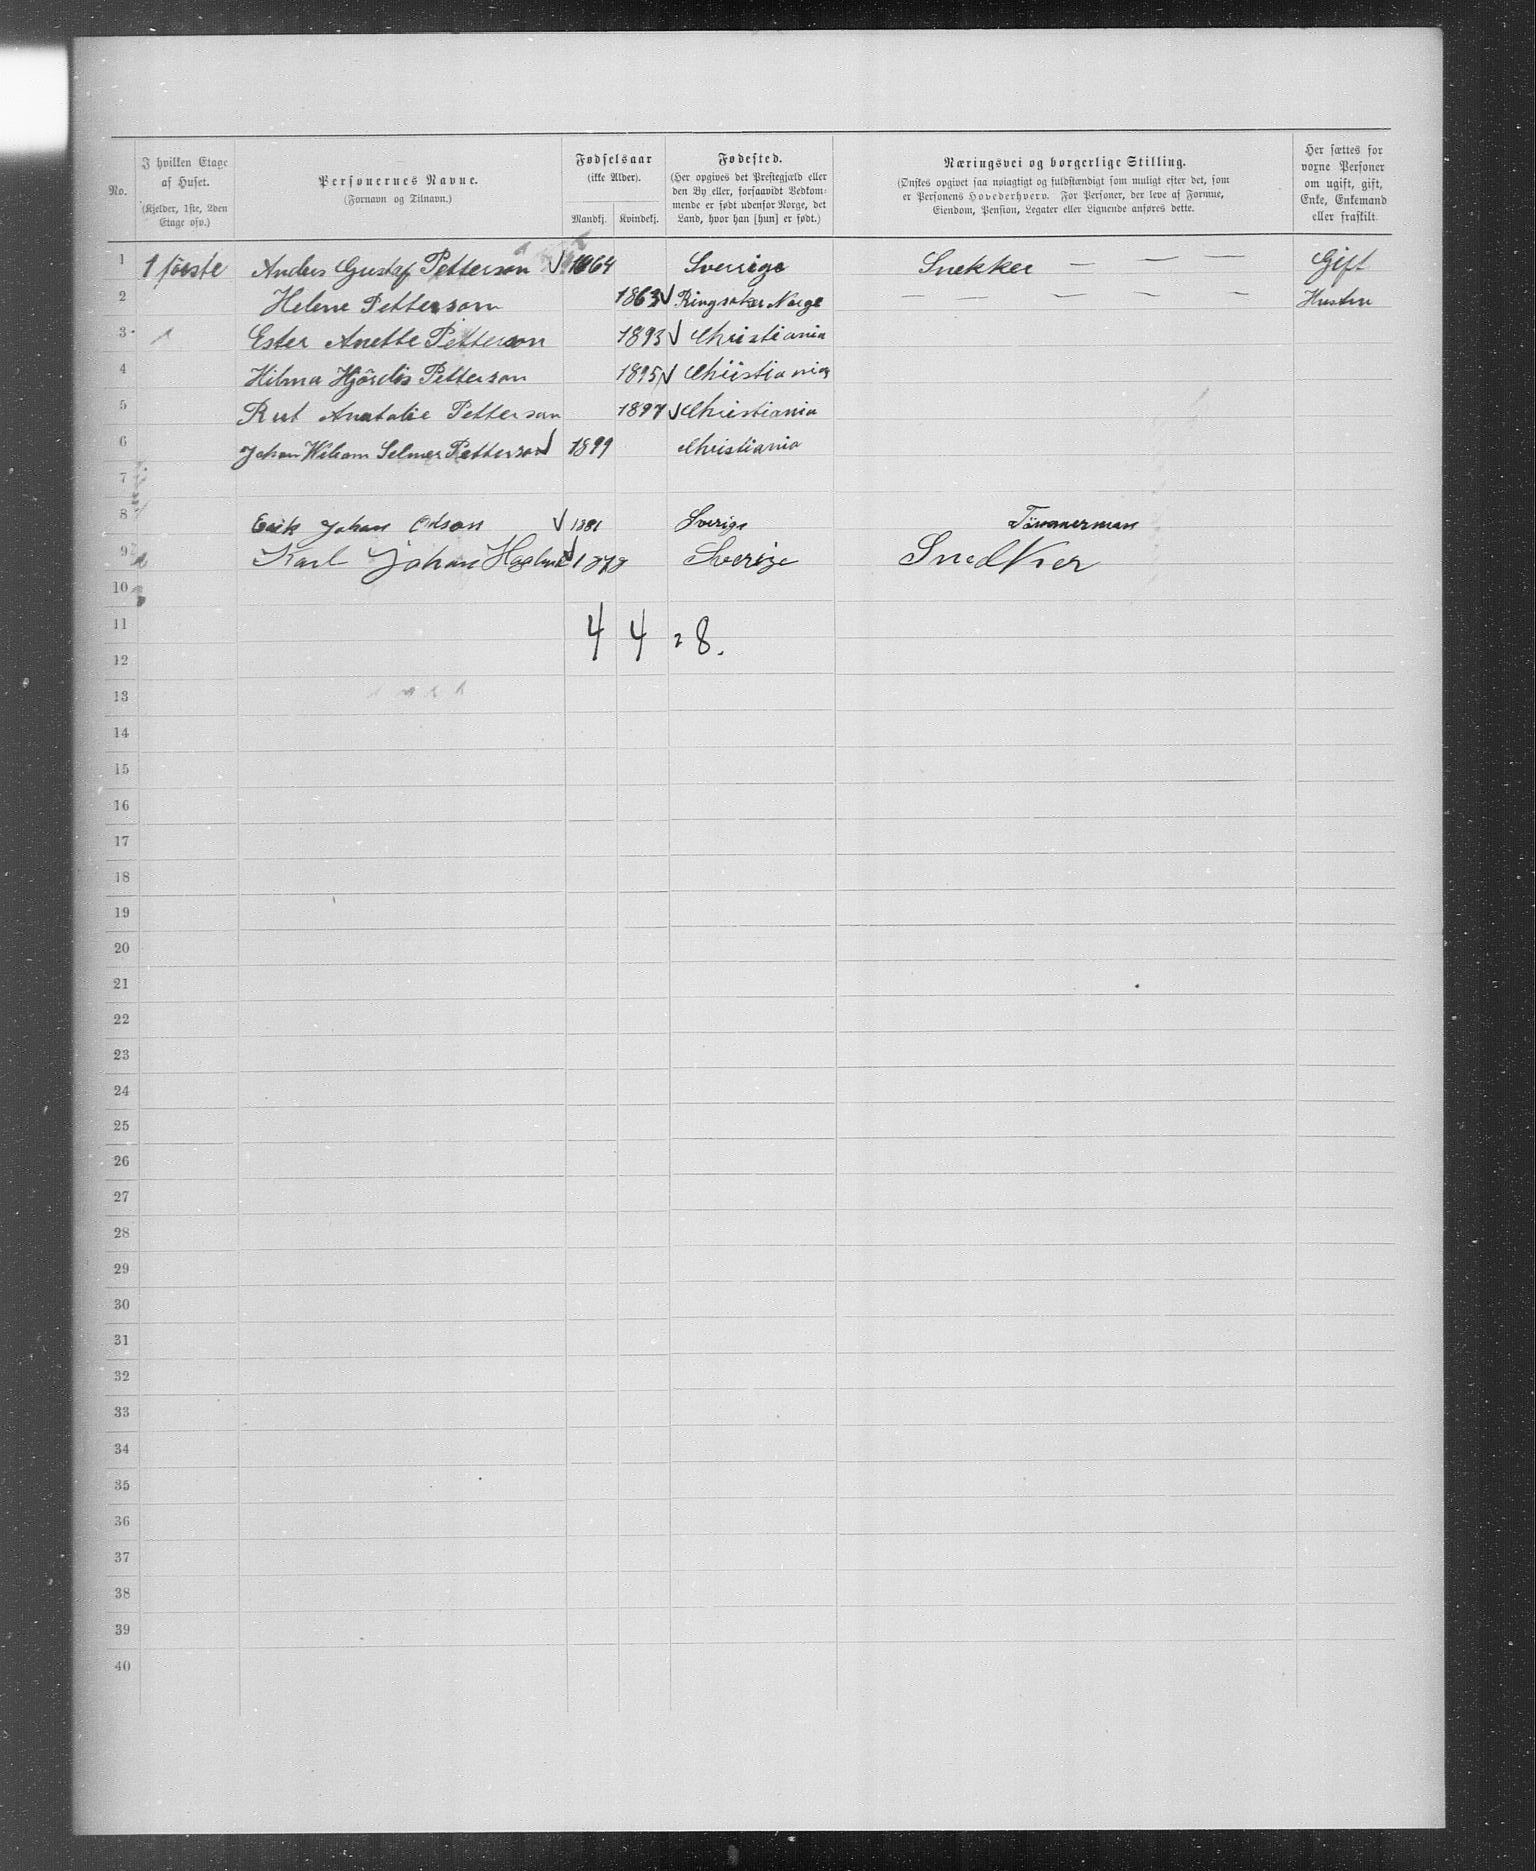 No. | I hvilken Etage af Huset. (Kjelder, 1ste, 2den Etage osv.) | Personernes Navne. (Fornavn og Tilnavn.) | Fødselsaar (ikke Alder). Mandkj. | Kvindekj. | Fødested. (Her opgives det Prestegjæld eller den By eller, forsaavidt Vedkommende er født udenfor Norge, det Land, hvor han [hun] er født.) | Næringsvei og borgerlige Stilling. (Ønskes opgivet saa nøiagtigt og fuldstændigt som muligt efter det, som er Personens Hovederhverv. For Personer, der leve af Formue, Eiendom, Pension, Legater eller Lignende anføres dette. | Her sættes for voxne Personer om ugift, gift, Enke, Enkemand eller fraskilt.
1 | 1 föeste | Anders Gustaf Petterson √ | 1864 | | Sverrige | Snekker — — — | Gift
2 | | Helene Petterson | | 1863 √ | Ringsaker Norge | — — — — — | Hustru
3 | | Ester Anette Petterson | | 1893 √ | Christiania
4 | | Hilma Hjördis Petterson | | 1895 √ | Christiania
5 | | Rut Anatalie Petterson | | 1897 √ | Christiania
6 | | Johan Wiliam Selmer Petterson √ | 1899 | | Christiania
7
8 | | Erik Johan Olson √ | 1881 | | Sverige | Tömmerman
9 | | Karl Johan Haglund √ | 1878 | | Sverige | SnedKer
10
11 | | | 4 | 4 | = 8.
12
13
14
15
16
17
18
19
20
21
22
23
24
25
26
27
28
29
30
31
32
33
34
35
36
37
38
39
40